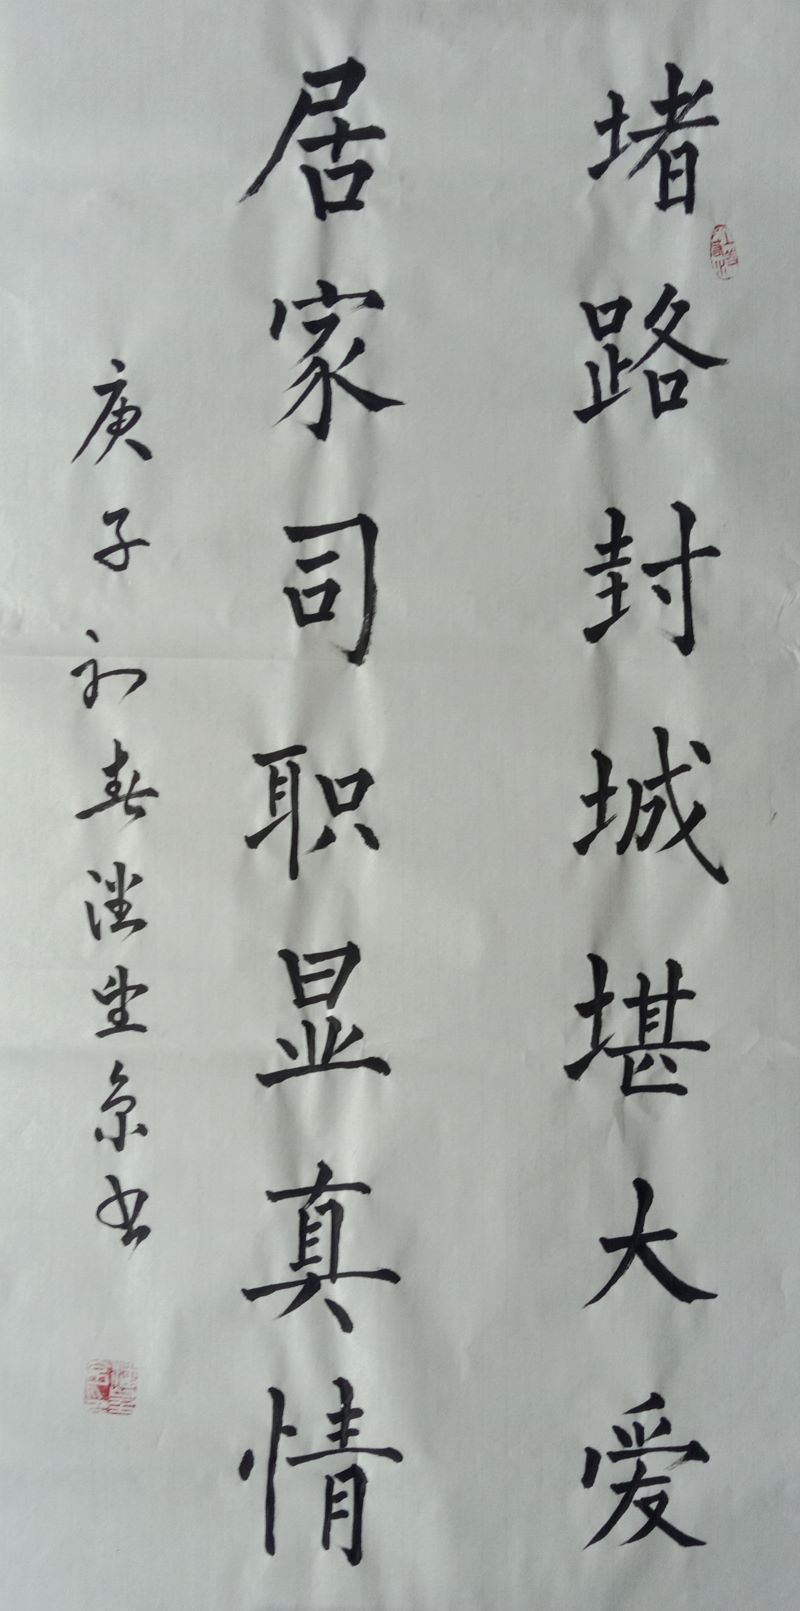 堵路封城堪大爱
居家司职显真情
庚子初春潘坐京书